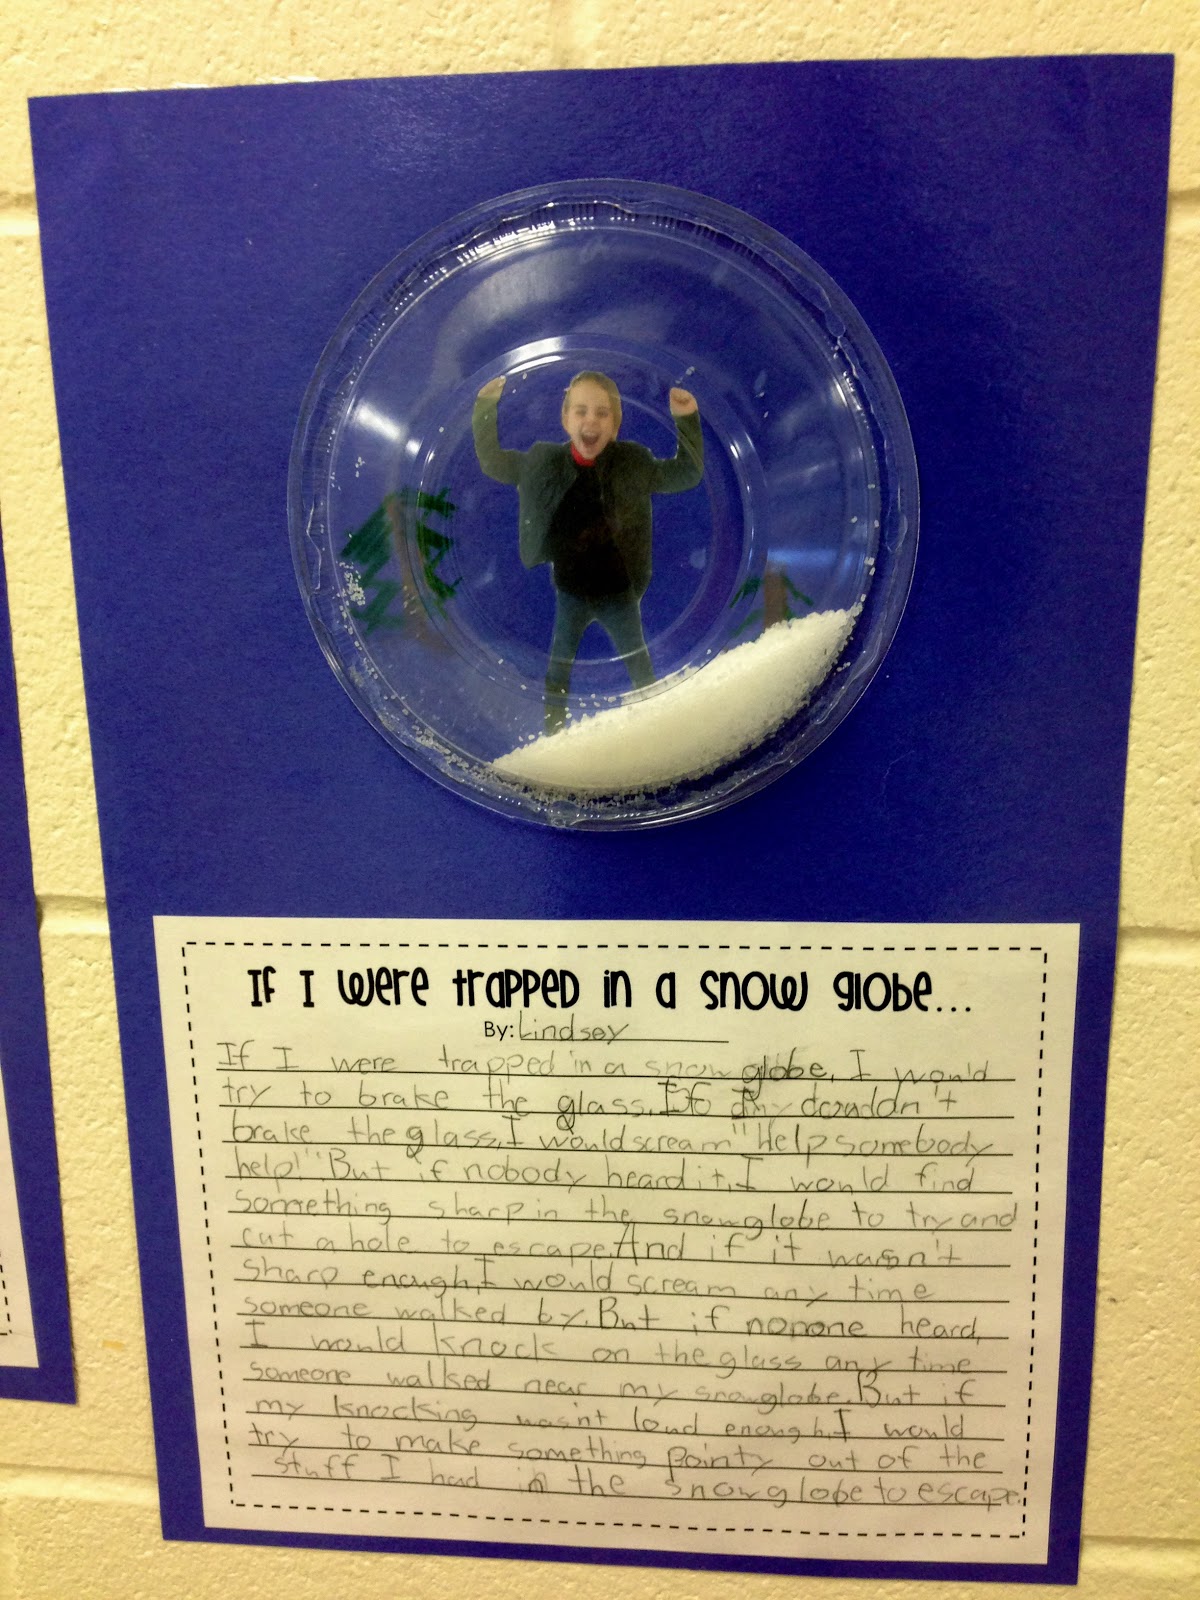 If I were trapped in a snow globe...
By: Lindsey
If I were trapped in a snow globe, I would
try to brake the glass. If I couldn't
brake the glass, I would scream "Help somebody
help!" But if nobody heard it, I would find
something sharp in the snowglobe to try and
cut a hole to escape. And if it wasn't
sharp enough, I would scream any time
someone walked by. But if nonone heard,
I would knock on the glass any time
someone walked near my snowglobe. But if
my knocking wasn't loud enough, I would
try to make something pointy out of the
stuff I had in the snowglobe to escape.